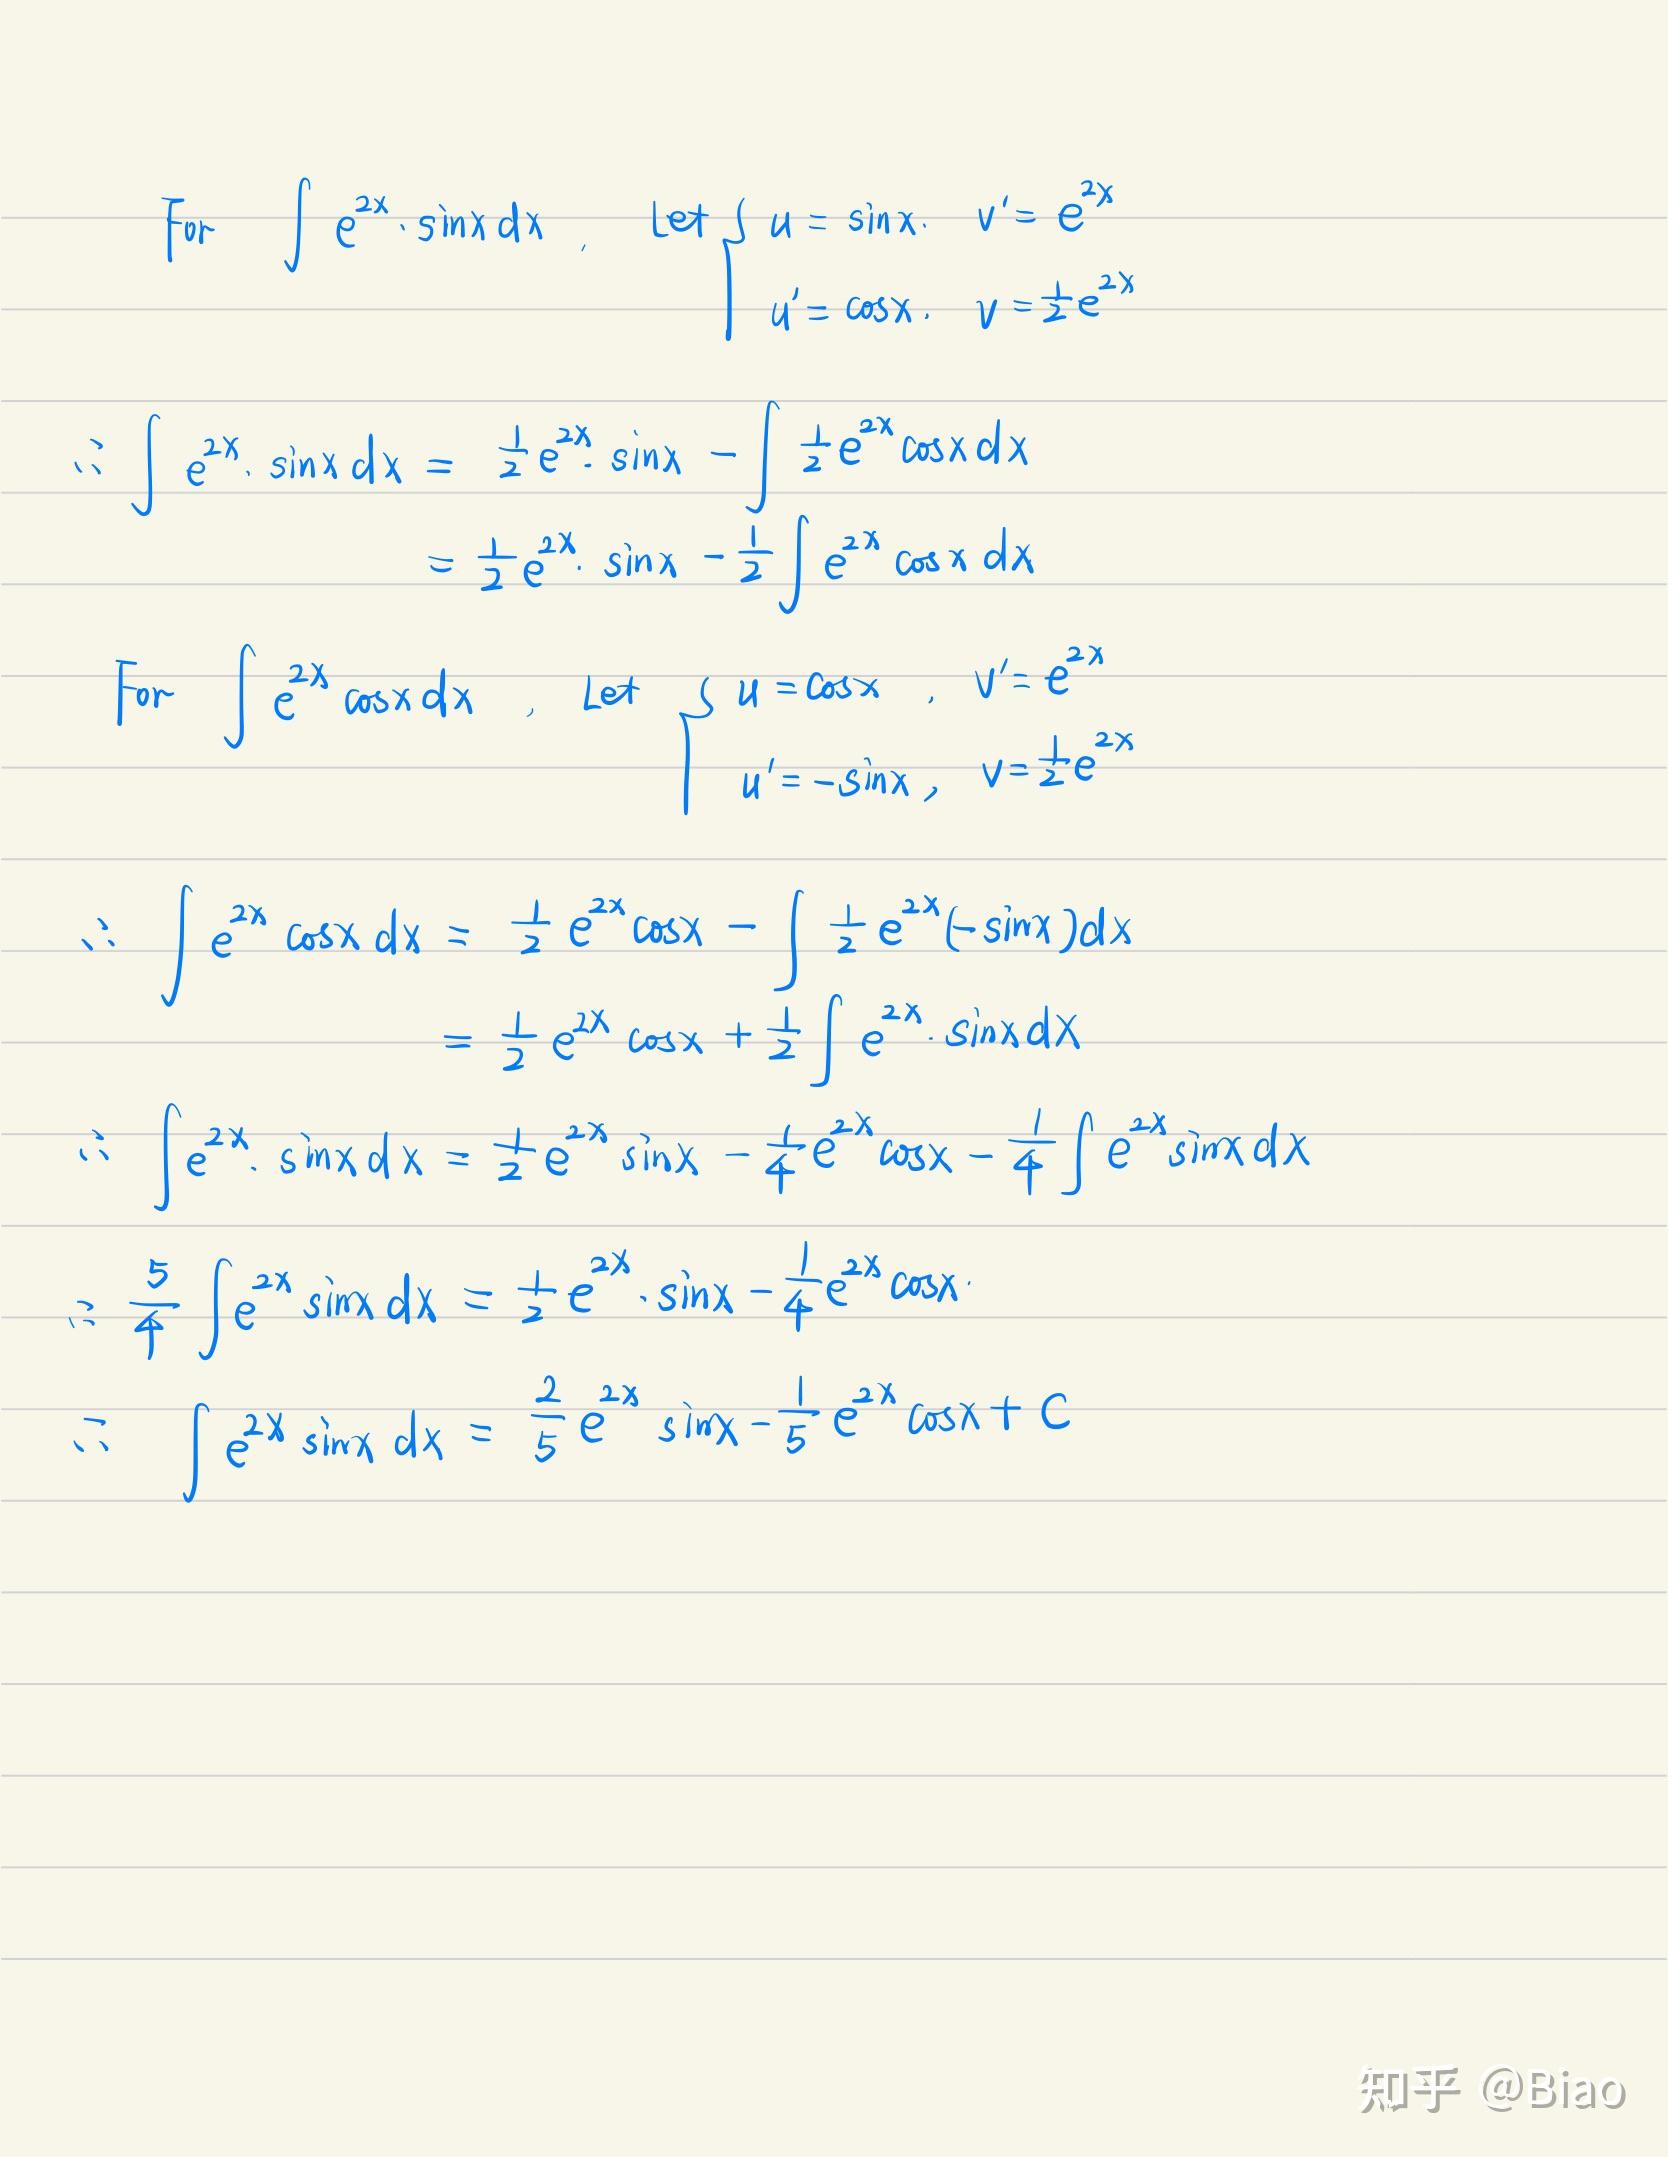 For ∫ e^{2x} · sinx dx , Let { u = sinx. v' = e^{2x}
u' = cosx. v = \frac{1}{2} e^{2x}
∴ ∫ e^{2x} · sinx dx = \frac{1}{2} e^{2x} · sinx - ∫ \frac{1}{2} e^{2x} cosx dx
= \frac{1}{2} e^{2x} · sinx - \frac{1}{2} ∫ e^{2x} cosx dx
For ∫ e^{2x} cosx dx , Let { u = cosx , v' = e^{2x}
u' = -sinx , v = \frac{1}{2} e^{2x}
∴ ∫ e^{2x} cosx dx = \frac{1}{2} e^{2x} cosx - ∫ \frac{1}{2} e^{2x} (-sinx) dx
= \frac{1}{2} e^{2x} cosx + \frac{1}{2} ∫ e^{2x} · sinx dx
∴ ∫ e^{2x} · sinx dx = \frac{1}{2} e^{2x} sinx - \frac{1}{4} e^{2x} cosx - \frac{1}{4} ∫ e^{2x} sinx dx
∴ \frac{5}{4} ∫ e^{2x} sinx dx = \frac{1}{2} e^{2x} · sinx - \frac{1}{4} e^{2x} cosx.
∴ ∫ e^{2x} sinx dx = \frac{2}{5} e^{2x} sinx - \frac{1}{5} e^{2x} cosx + C
知乎 @Biao